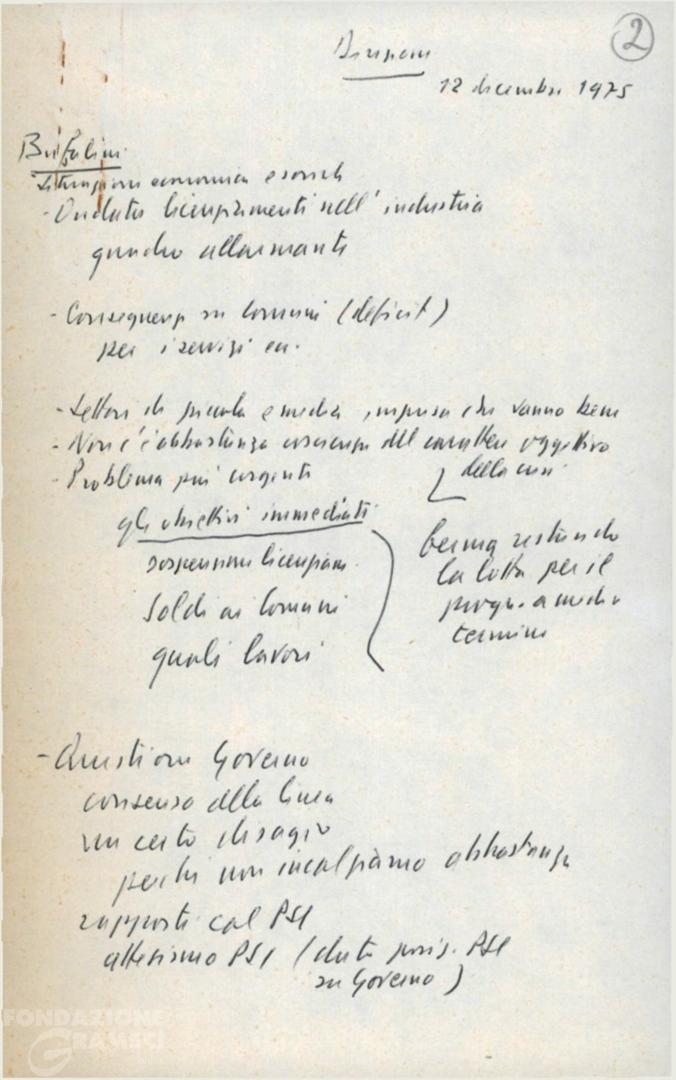 2
Direzione
12 dicembre 1975
Bufalini
Situazione economica e sociale
- Ondata licenziamenti nell'industria
quadro allarmante
- Conseguenze su Comuni (deficit)
per i servizi ecc.
- Settori di piccola e media impresa che vanno bene
- Non c'è abbastanza coscienza del carattere oggettivo
della crisi
- Problema più urgente
gli obiettivi immediati
sospensione licenziam.
Soldi ai Comuni
quali lavori
ferma restando
la lotta per il
progr. a medio
termine
- Questione Governo
consenso alla linea
un certo disagio
perché non incalziamo abbastanza
rapporti col PSI
attesismo PSI (data posiz. PSI
su Governo)
FONDAZIONE
GRAMSCI